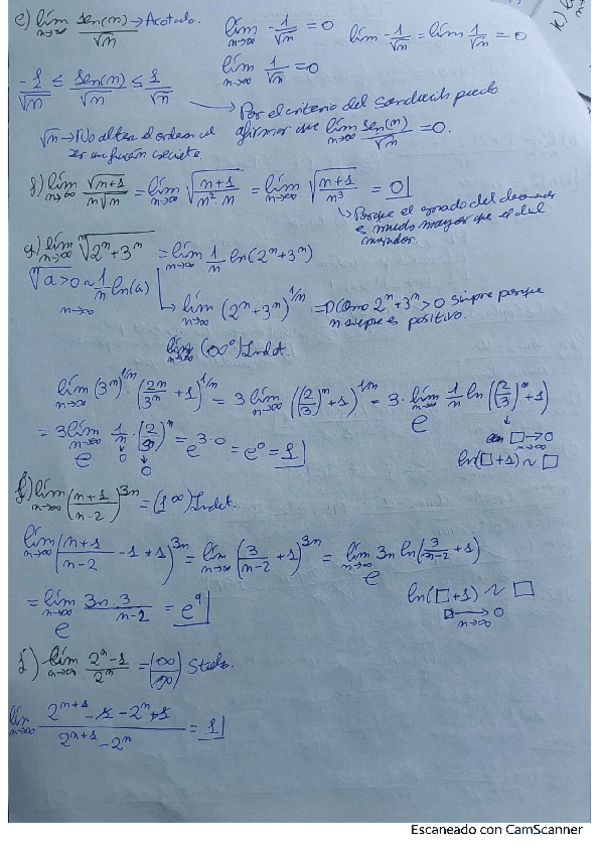 e) lím n→∞ sen(n)/√n → Acotado. lím n→∞ -1/√n = 0 lím -1/√n = lím 1/√n = 0
lím n→∞ 1/√n = 0
-1/√n ≤ sen(n)/√n ≤ 1/√n
→ Por el criterio del sandwich puedo
afirmar que lím n→∞ sen(n)/√n = 0.
√n → No altera el orden al
ser un función creciente.
f) lím n→∞ √(n+1)/(n√n) = lím n→∞ √((n+1)/(n²·n)) = lím n→∞ √((n+1)/n³) = 0
↳ Porque el grado del
es mucho mayor que el del
g) lím n→∞ ⁿ√(2ⁿ+3ⁿ) = lím n→∞ 1/n ln(2ⁿ+3ⁿ)
ⁿ√a>0 ~ 1/n ln(a)
n→∞
↳ lím n→∞ (2ⁿ+3ⁿ)^(1/n) => Como 2ⁿ+3ⁿ>0 siempre porque
n siempre es positivo.
lím n→∞ (∞⁰) Indet.
lím n→∞ (3ⁿ)^(1/n) · (2ⁿ/3ⁿ + 1)^(1/n) = 3 lím n→∞ ((2/3)ⁿ+1)^(1/n) = 3· e^(lím n→∞ 1/n ln((2/3)ⁿ+1))
= 3 e^(lím n→∞ 1/n · (2/3)ⁿ) = e^(3·0) = e⁰ = 1
↓ 0 ↓ 0
□→0
ln(□+1) ~ □
lím n→∞ ((n+1)/(n-2))^(3n) = (1^∞) Indet.
lím n→∞ ((n+1)/(n-2) -1+1)^(3n) = lím n→∞ (3/(n-2) +1)^(3n) = e^(lím n→∞ 3n ln(3/(n-2) +1))
= e^(lím n→∞ 3n·3/(n-2)) = e⁹
ln(□+1) ~ □
□→0
n→∞
lím n→∞ (2ⁿ-1)/2ⁿ = (∞/∞) Stolz.
lím n→∞ (2ⁿ⁺¹ -1 -2ⁿ +1)/(2ⁿ⁺¹ - 2ⁿ) = 1
Escaneado con CamScanner